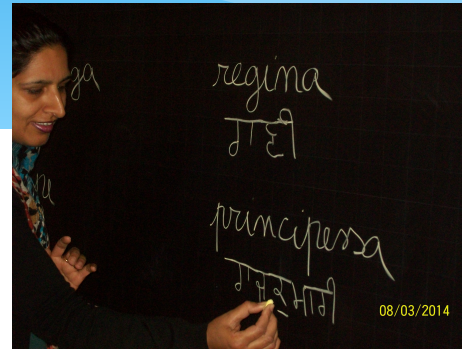 regina
ਰਾਣੀ
principessa
ਰਾਜਕੁਮਾਰੀ
08/03/2014